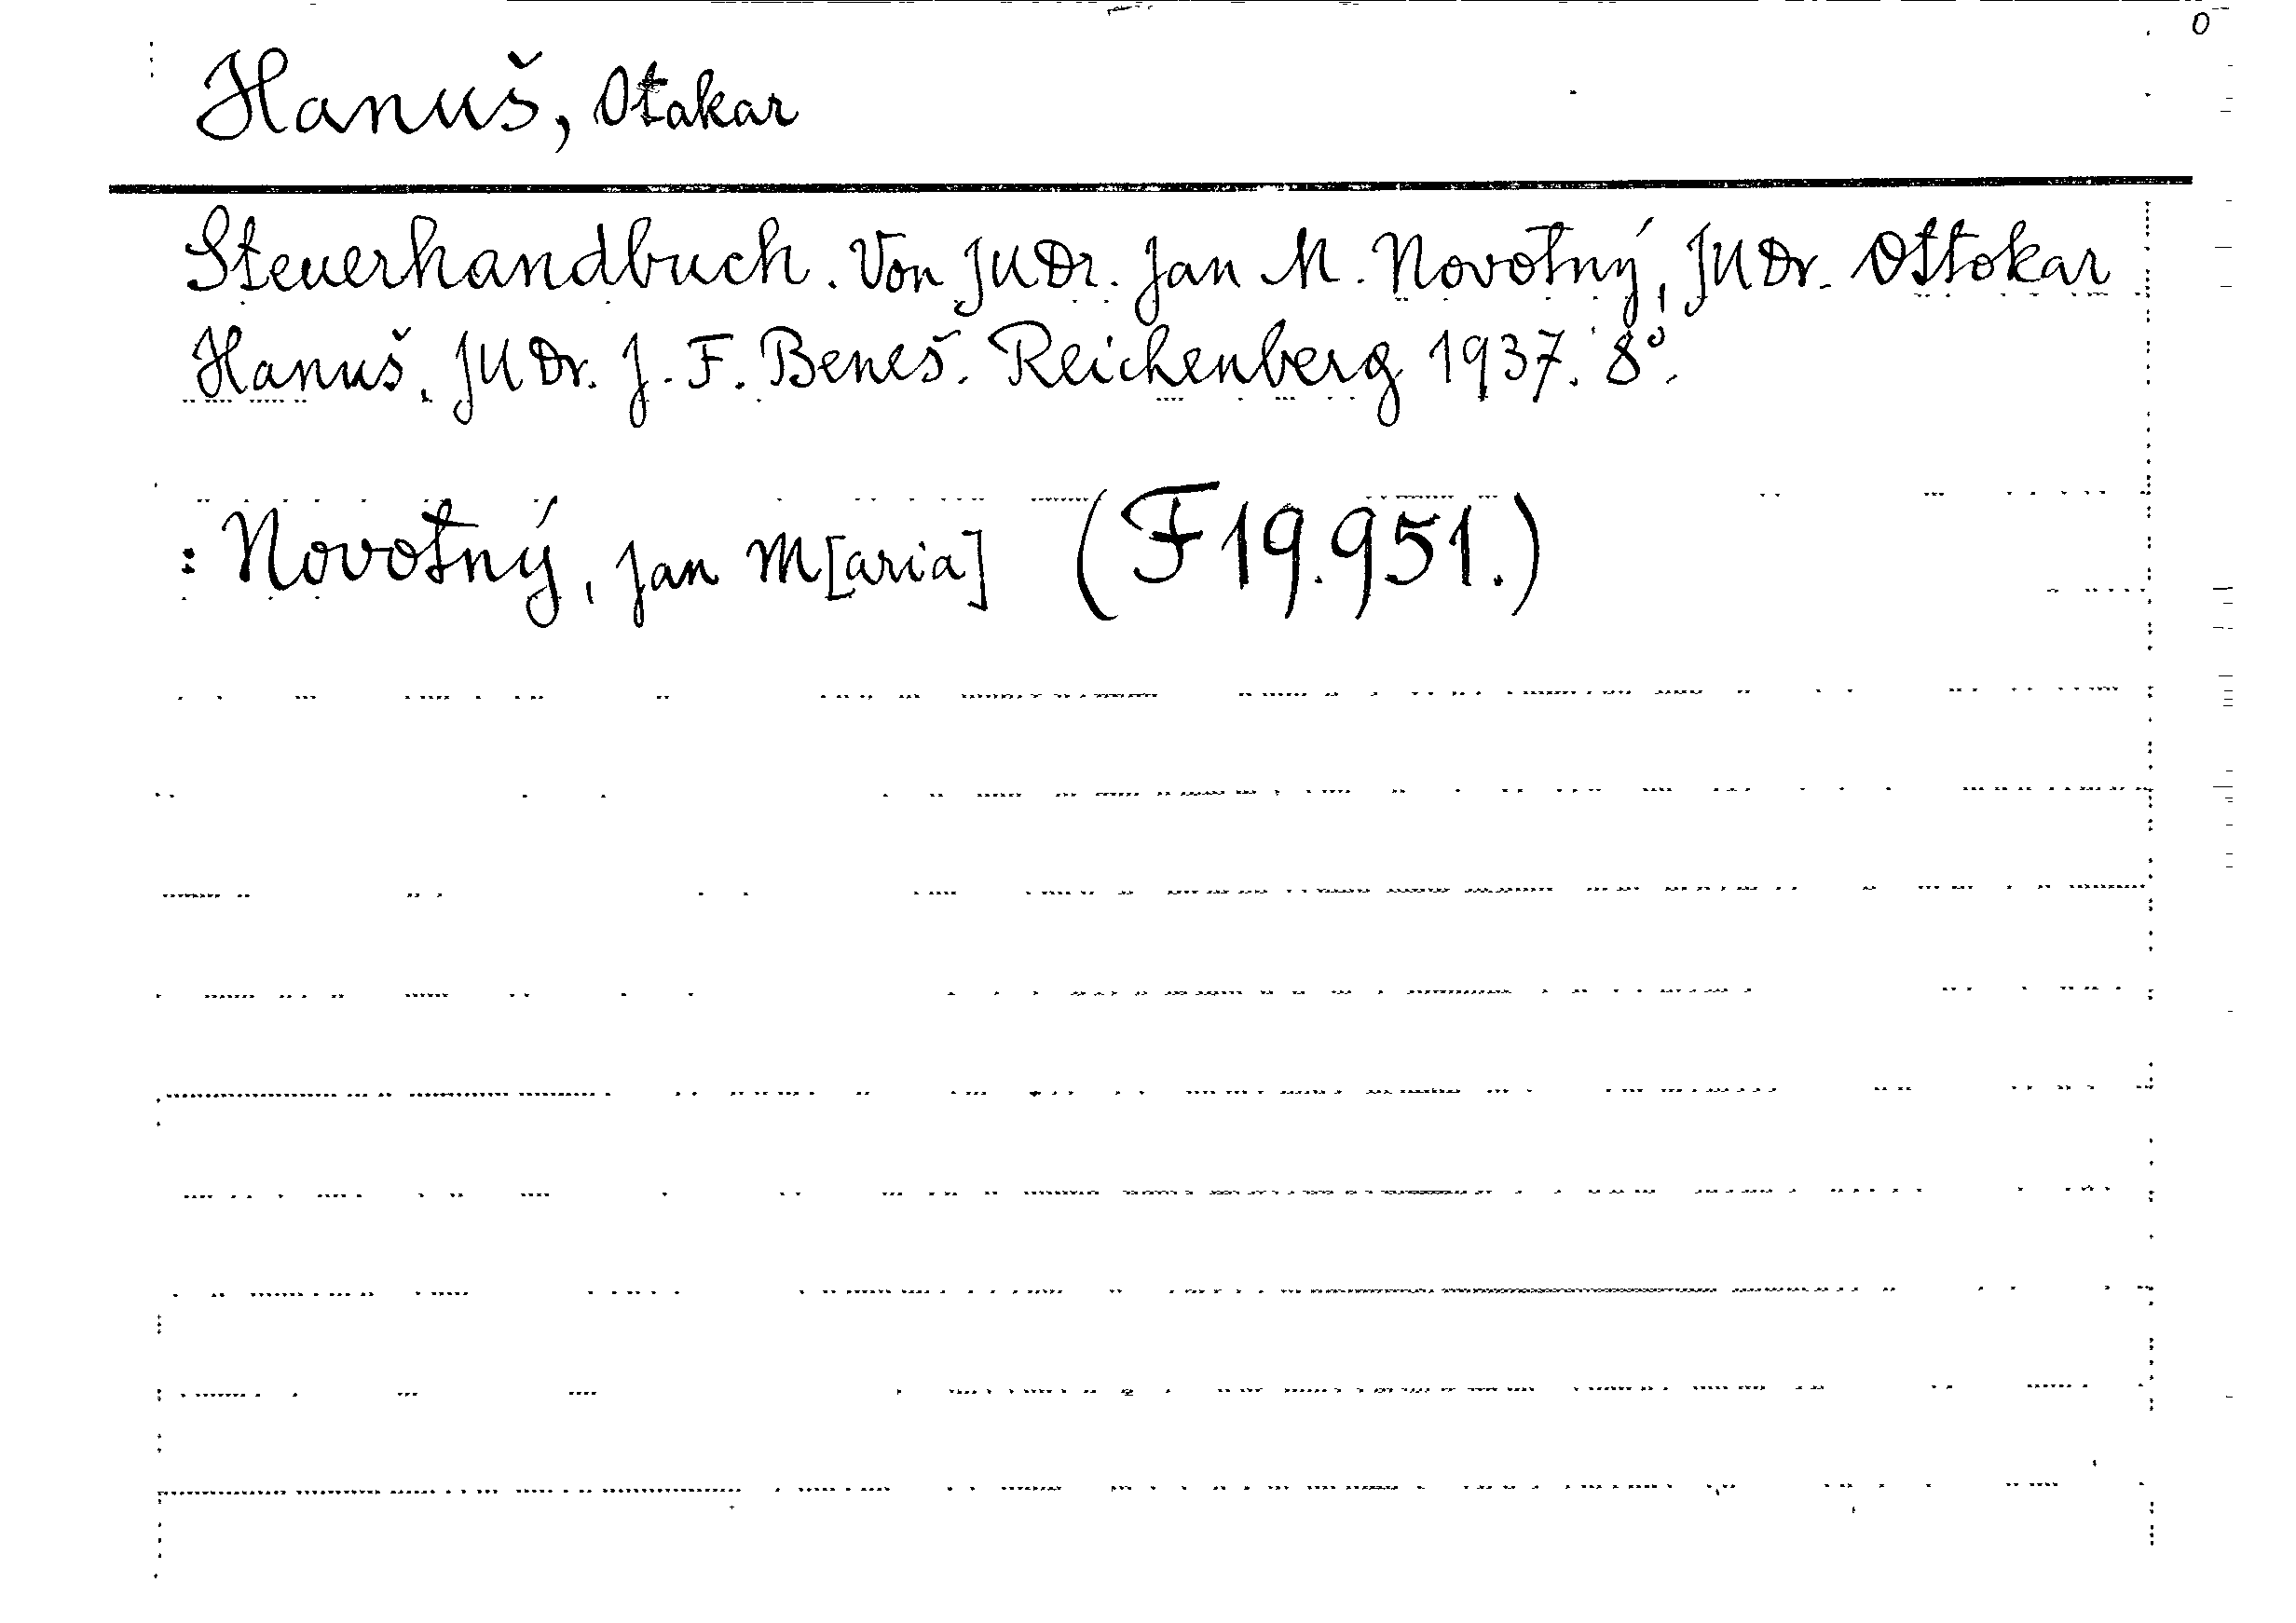 Hanuš, Otakar
Steuerhandbuch. Von JUDr. Jan M. Novotný, JUDr. Ottokar
Hanuš, JUDr. J. F. Beneš. Reichenberg 1937. 8°.
: Novotný, Jan M[aria] (F 19.951.)